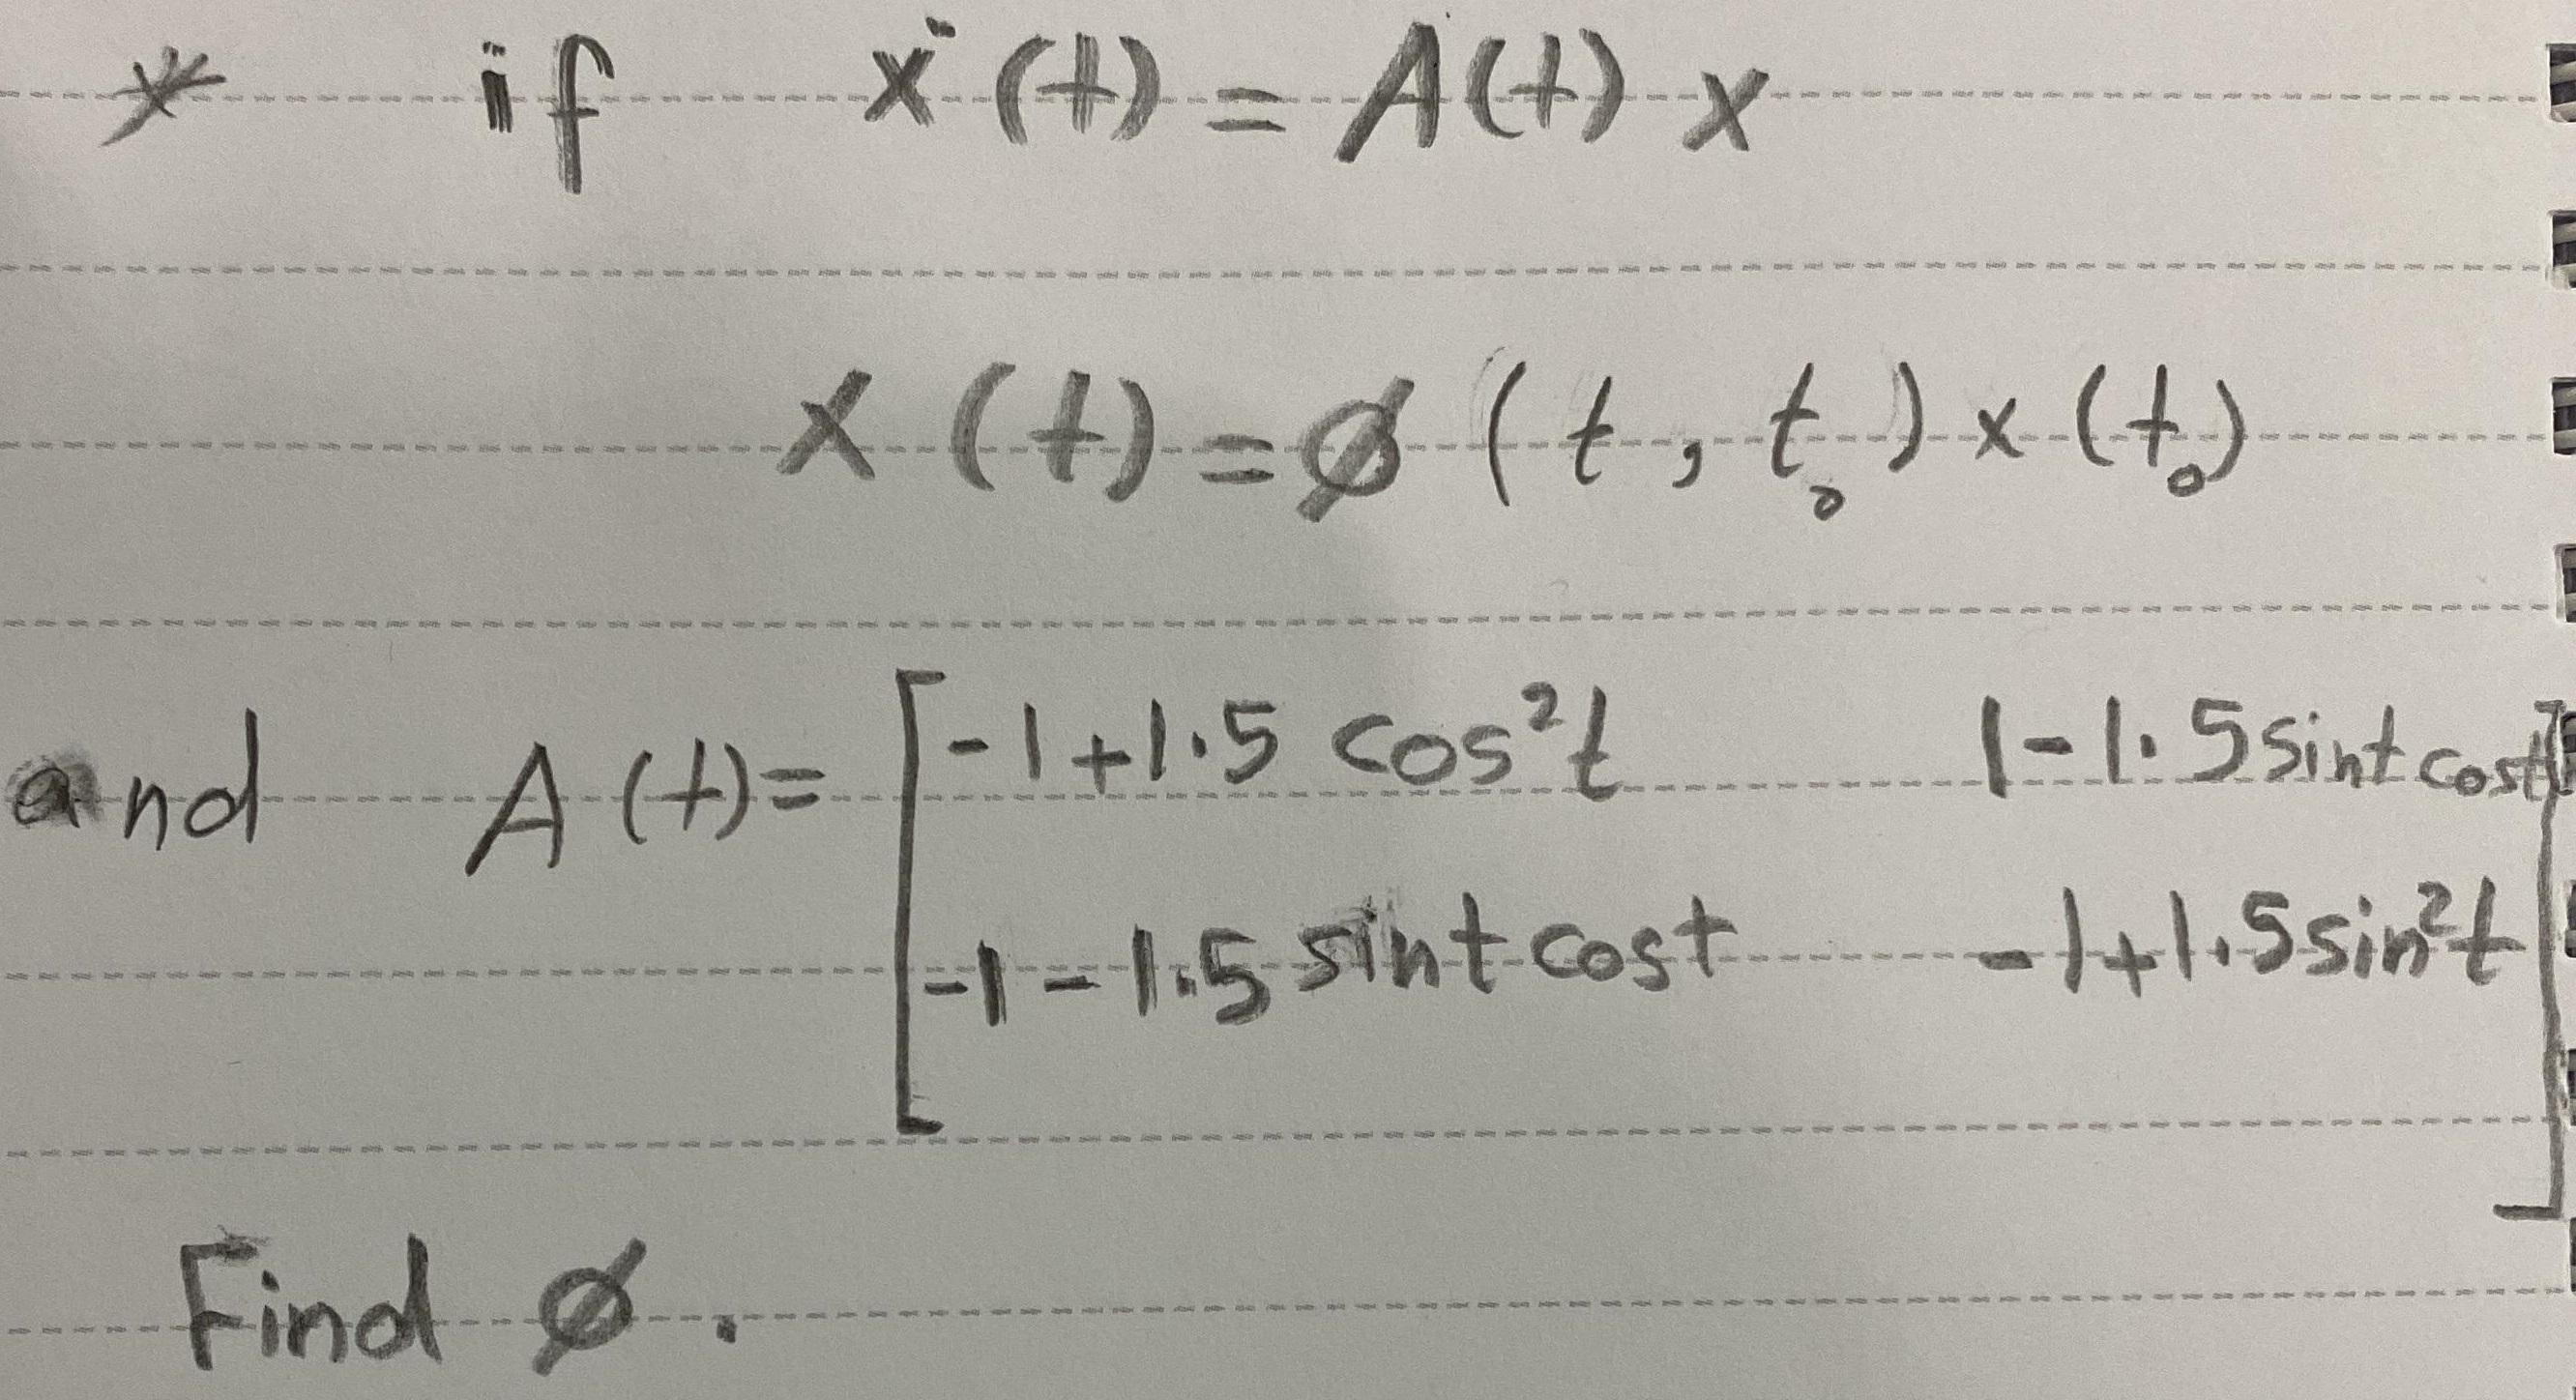 * if ẋ(t) = A(t) x
x(t) = ϕ (t, t₀) x (t₀)
and A(t) = [ -1+1.5 cos²t 1-1.5 sint cost
-1-1.5 sint cost -1+1.5 sin²t ]
Find ϕ.